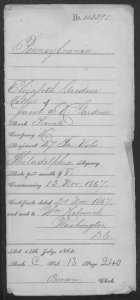 No. 113393
Pennsylvania
Elizabeth Gardner
Mother of
Jacob R. Gardner
Rank Private
Company
Regiment 67 Pa. Vols
Philadelphia Agency.
Rate per month $ 8
Commencing 13 Nov. 1867
Certificate dated 21 Nov. 1867
and sent to Wm Helmick
Washington
D.C.
Act 14th July, 1862.
Book C Vol. 13 Page 240
Clerk.